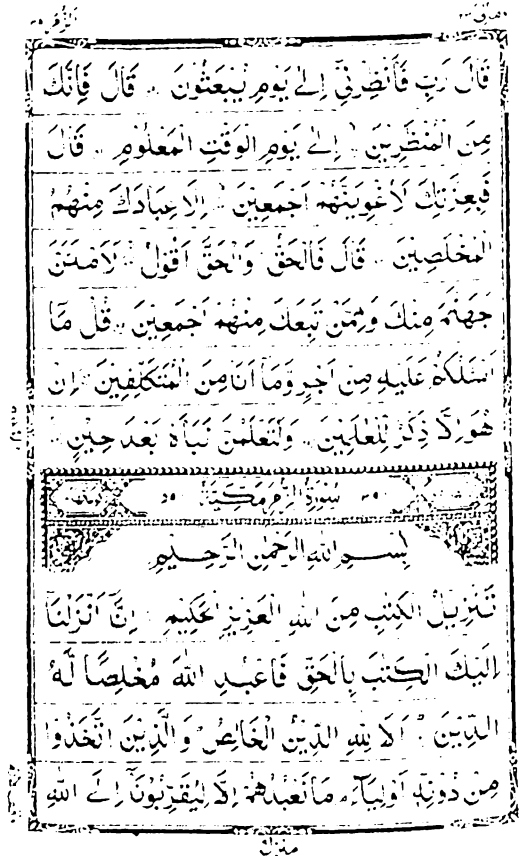 الزمر ٣٩
ومالی ٢٣
قَالَ رَبِّ فَاَنْظِرْنِیْۤ اِلٰی یَوْمِ یُبْعَثُوْنَ قَالَ فَاِنَّكَ
مِنَ الْمُنْظَرِیْنَ اِلٰی یَوْمِ الْوَقْتِ الْمَعْلُوْمِ قَالَ
فَبِعِزَّتِكَ لَاُغْوِیَنَّهُمْ اَجْمَعِیْنَ اِلَّا عِبَادَكَ مِنْهُمُ
الْمُخْلَصِیْنَ قَالَ فَالْحَقُّ وَالْحَقَّ اَقُوْلُ لَاَمْلَـَٔنَّ
جَهَنَّمَ مِنْكَ وَمِمَّنْ تَبِعَكَ مِنْهُمْ اَجْمَعِیْنَ قُلْ مَاۤ
اَسْـَٔلُكُمْ عَلَیْهِ مِنْ اَجْرٍ وَّمَاۤ اَنَا مِنَ الْمُتَكَلِّفِیْنَ اِنْ
هُوَ اِلَّا ذِكْرٌ لِّلْعٰلَمِیْنَ وَلَتَعْلَمُنَّ نَبَاَهٗ بَعْدَ حِیْنٍ
٣٩ سُوْرَةُ الزُّمَرِ مَكِّیَّةٌ ٥٩
بِسْمِ اللّٰهِ الرَّحْمٰنِ الرَّحِیْمِ
تَنْزِیْلُ الْكِتٰبِ مِنَ اللّٰهِ الْعَزِیْزِ الْحَكِیْمِ اِنَّاۤ اَنْزَلْنَاۤ
اِلَیْكَ الْكِتٰبَ بِالْحَقِّ فَاعْبُدِ اللّٰهَ مُخْلِصًا لَّهُ
الدِّیْنَ اَلَا لِلّٰهِ الدِّیْنُ الْخَالِصُ وَالَّذِیْنَ اتَّخَذُوْا
مِنْ دُوْنِهٖۤ اَوْلِیَآءَ مَا نَعْبُدُهُمْ اِلَّا لِیُقَرِّبُوْنَاۤ اِلَی اللّٰهِ
منزل